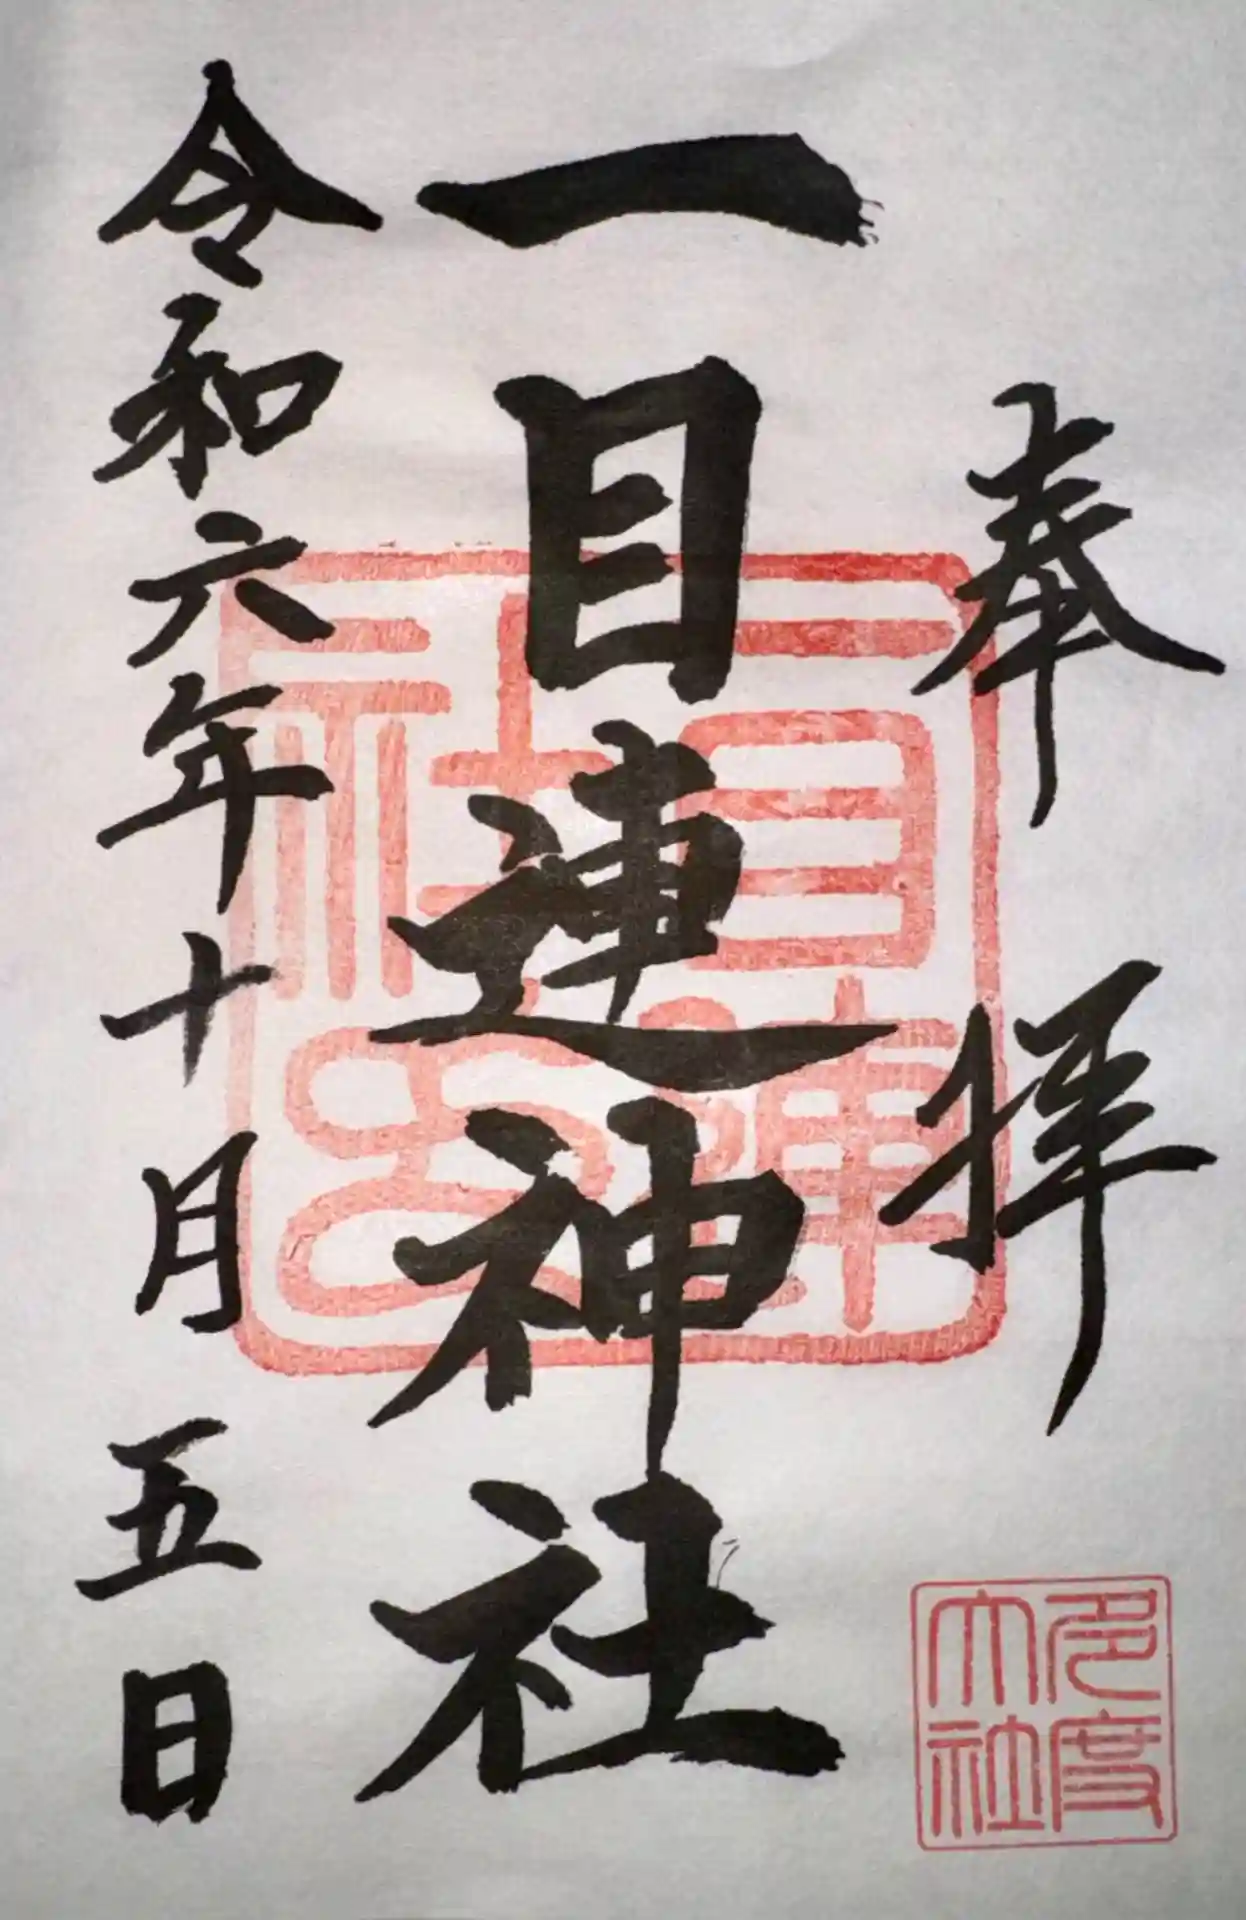 奉拝
一目連神社
令和六年十月五日
一目連社之印
多度大社